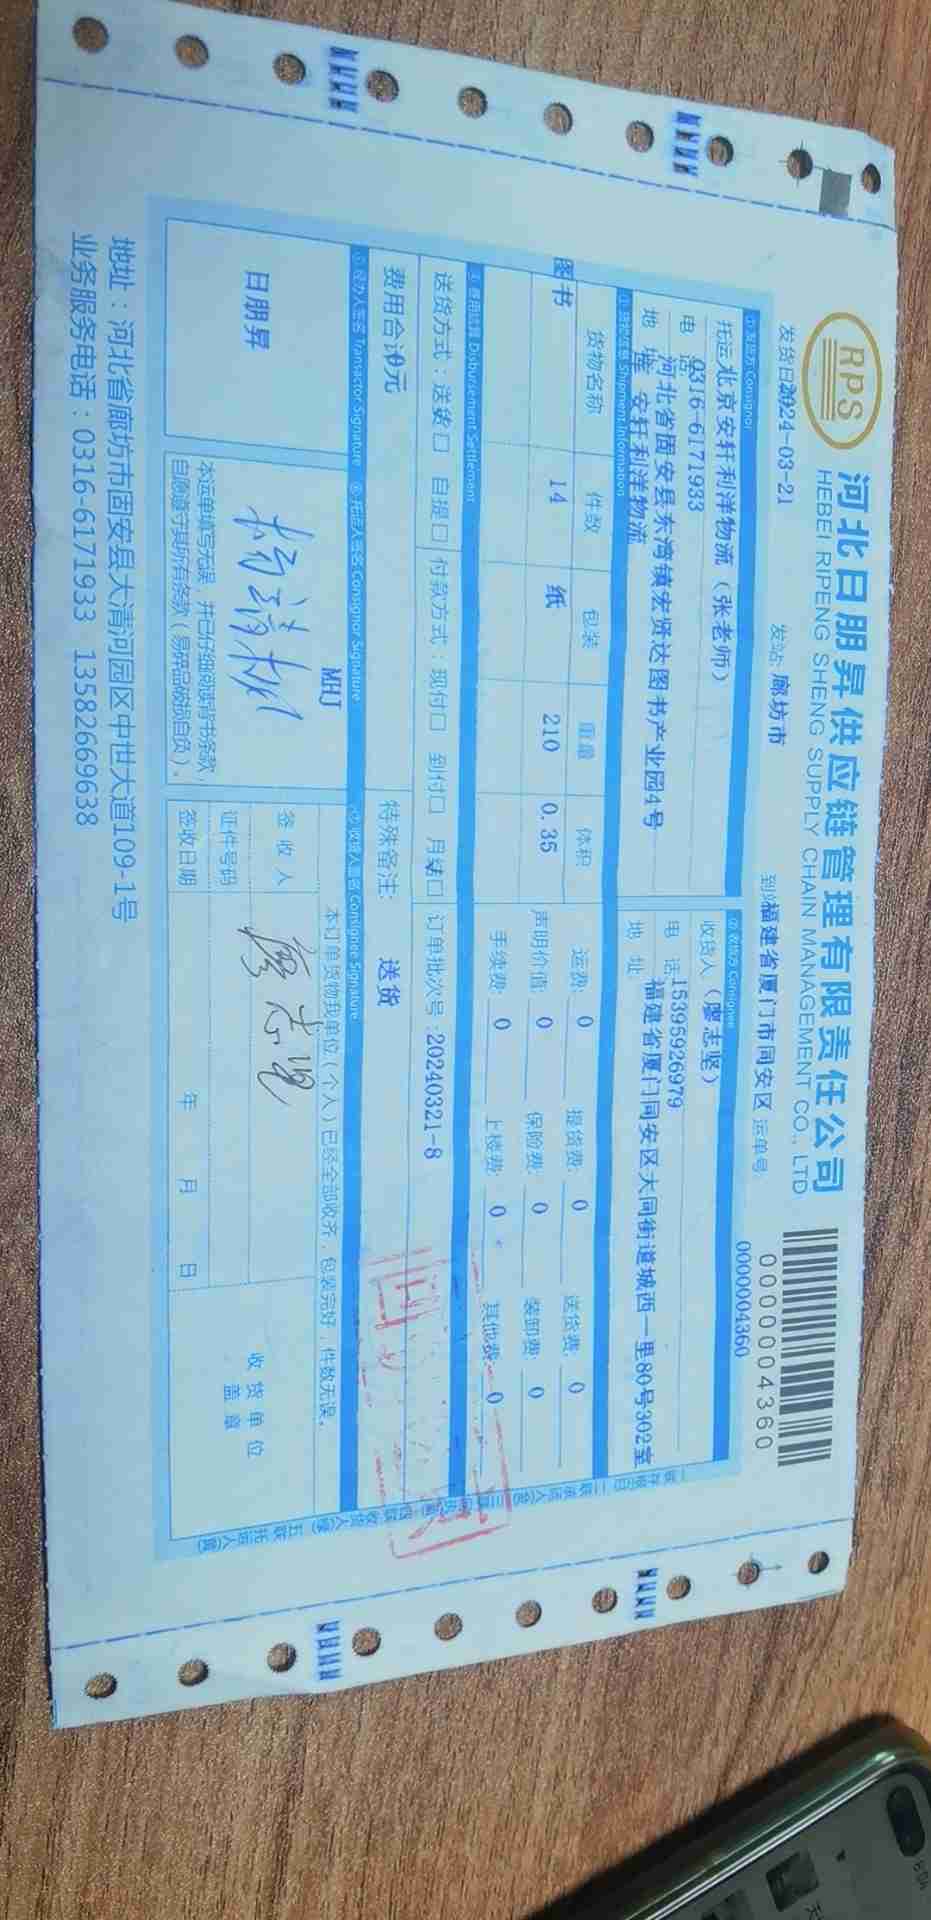 RPS
河北日朋昇供应链管理有限责任公司
HEBEI RIPENG SHENG SUPPLY CHAIN MANAGEMENT CO., LTD
0000004360
发货日2024-03-21
发站: 廊坊市
到站福建省厦门市同安区
运单号:
0000004360
① 发货方 Consignor
② 收货方 Consignee
托运北京安轩利洋物流（张老师）
收货人（廖志坚）
电 话0316-6171933
电 话15395926979
地 址河北省固安县东湾镇宏贤达图书产业园4号
安轩利洋物流
地 址福建省厦门同安区大同街道城西一里80号302室
③ 货物信息 Shipment Information
货物名称 件数 包装 重量 体积
图书 14 纸 210 0.35
运费: 0 提货费: 0 送货费: 0
声明价值: 0 保险费: 0 装卸费: 0
手续费: 0 上楼费: 0 其他费: 0
④ 费用结算 Disbursement Settlement
送货方式：送货口 自提口
付款方式：现付口 到付口 月结口
订单批次号:20240321-8
费用合计0元
特殊备注: 送货
⑤ 经办人签名 Transactor Signature
⑥ 托运人签名 Consignor Signature
⑦ 收货人签名 Consignee Signature
日朋昇
MHJ
本运单填写无误，并已仔细阅读背书条款，
自愿遵守其所有条款（易碎品破损自负）。
本订单货物我单位(个人)已经全部收齐，包装完好，件数无误。
签 收 人 廖志坚
证件号码
签收日期 年 月 日
收 货 单 位
盖 章
地址：河北省廊坊市固安县大清河园区中世大道109-1号
业务服务电话：0316-6171933 13582669638